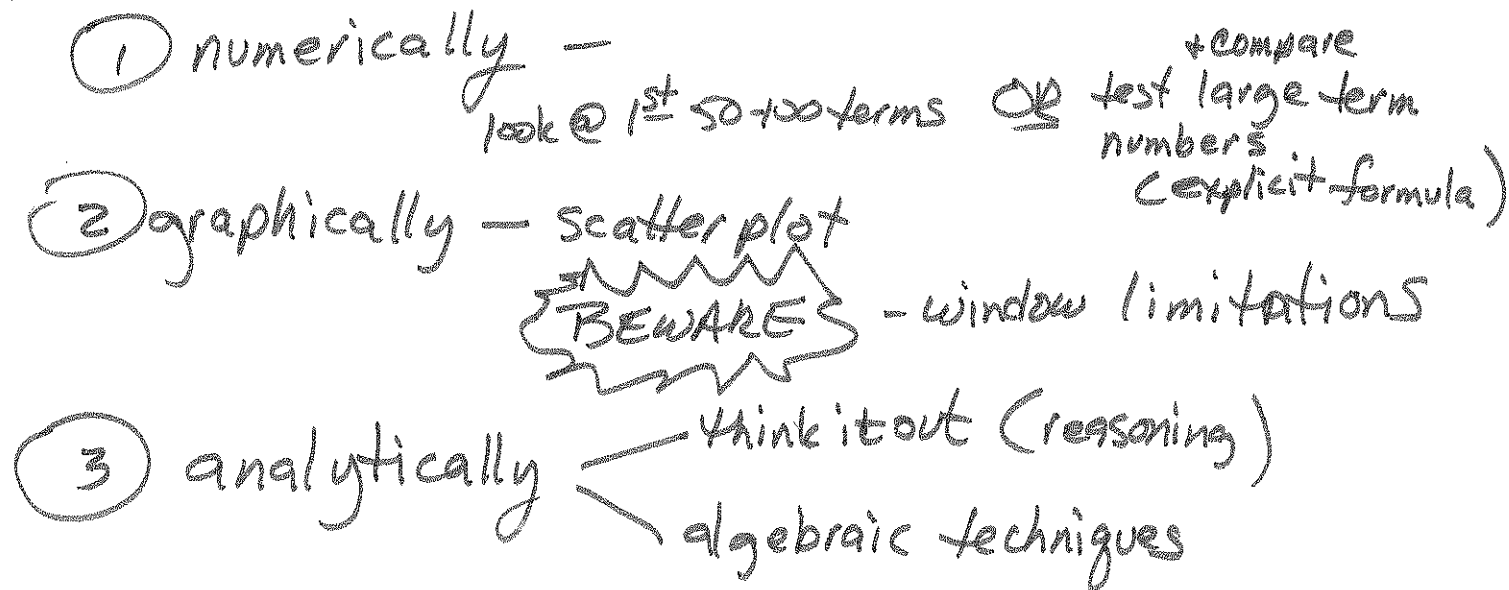 ① numerically —
look @ 1st 50-100 terms OR test + compare large term
numbers
(explicit formula)
② graphically — scatter plot
BEWARE - window limitations
③ analytically
think it out (reasoning)
algebraic techniques